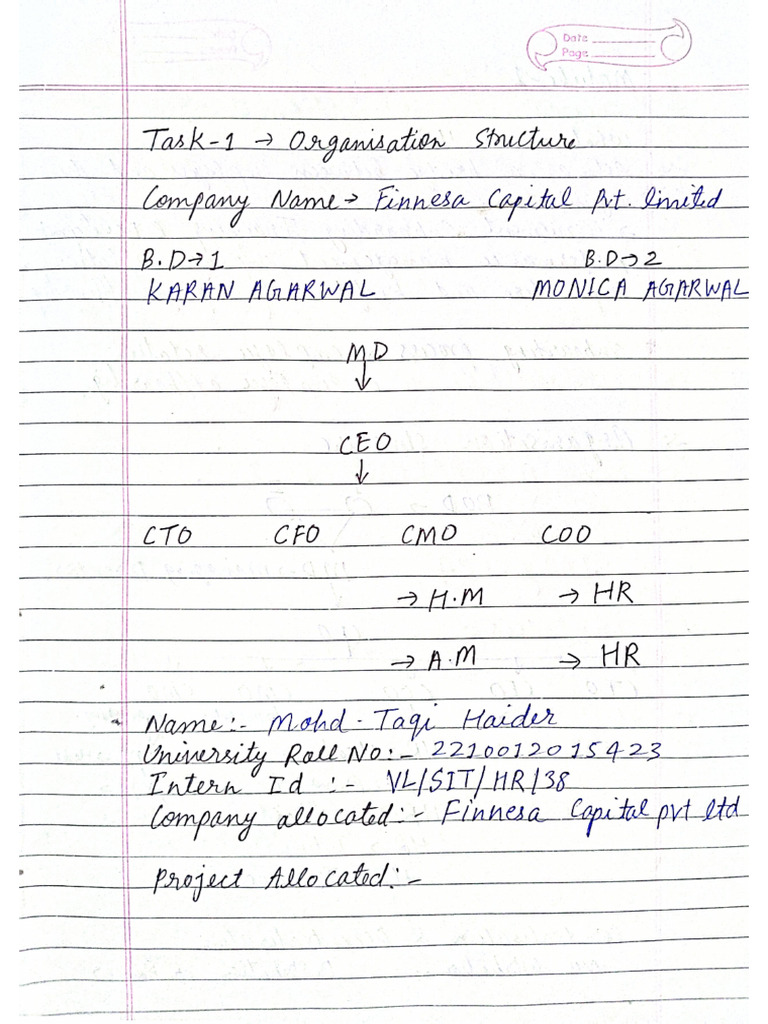 Date
Page
Task-1 → Organisation Structure
Company Name → Finnesa Capital Pvt. limited
B.D→1 B.D→2
KARAN AGARWAL MONICA AGARWAL
MD
↓
CEO
↓
CTO CFO CMO COO
→ H.M → HR
→ A.M → HR
Name:- Mohd-Taqi Haider
University Roll No:- 2210012015423
Intern Id :- VL/SIT/HR/38
Company allocated:- Finnesa Capital pvt ltd
Project Allocated:-